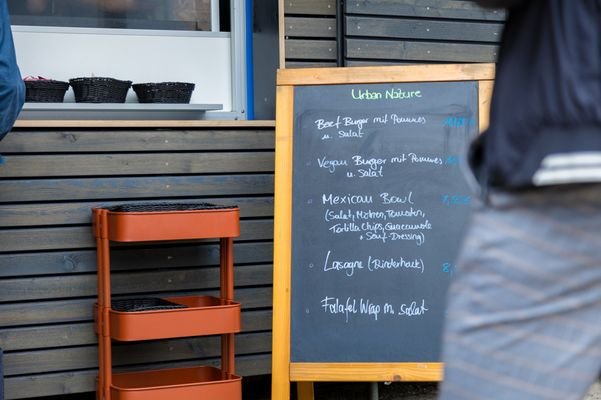 Urban Nature
Beef Burger mit Pommes
u. Salat
Vegan Burger mit Pommes
u. Salat
Mexican Bowl
(Salat, Möhren, Tomaten,
Tortilla Chips, Guacamole
+ Senf-Dressing)
Lasagne (Rinderhack)
Falafel Wrap m. Salat